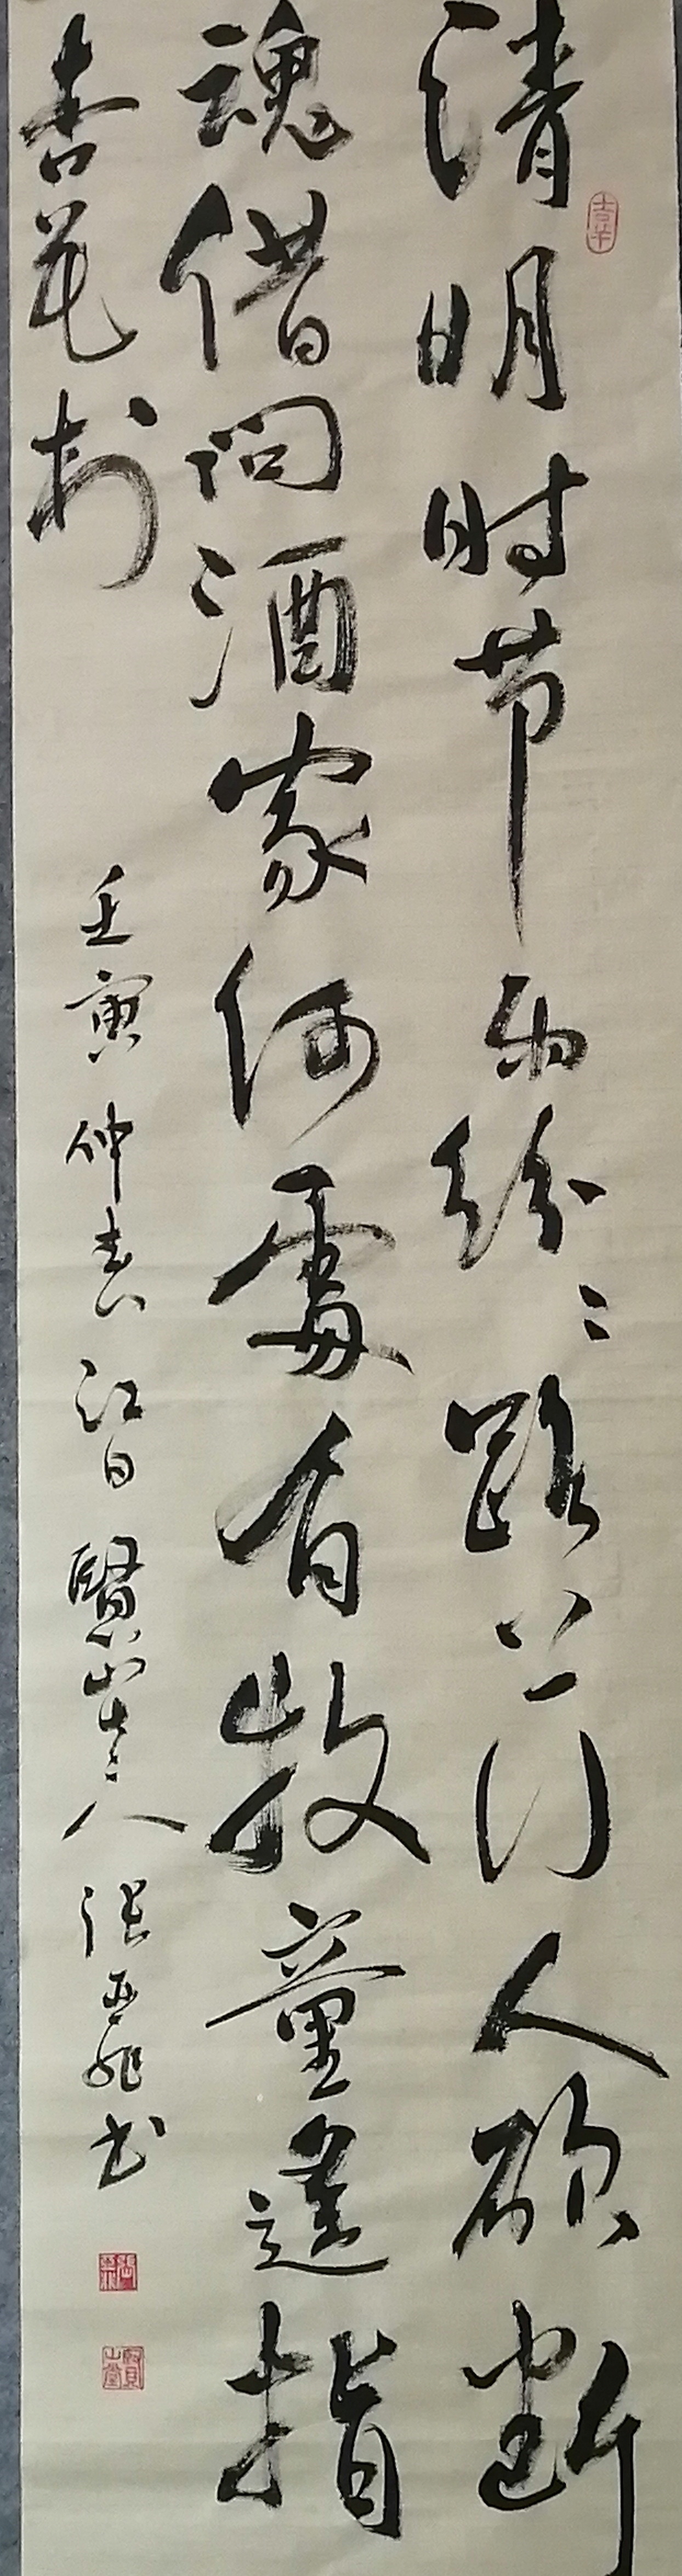 清明时节雨纷〻路上行人欲断
魂借问酒家何處有牧童遥指
杏花村
壬寅仲春江日賢人张亚书